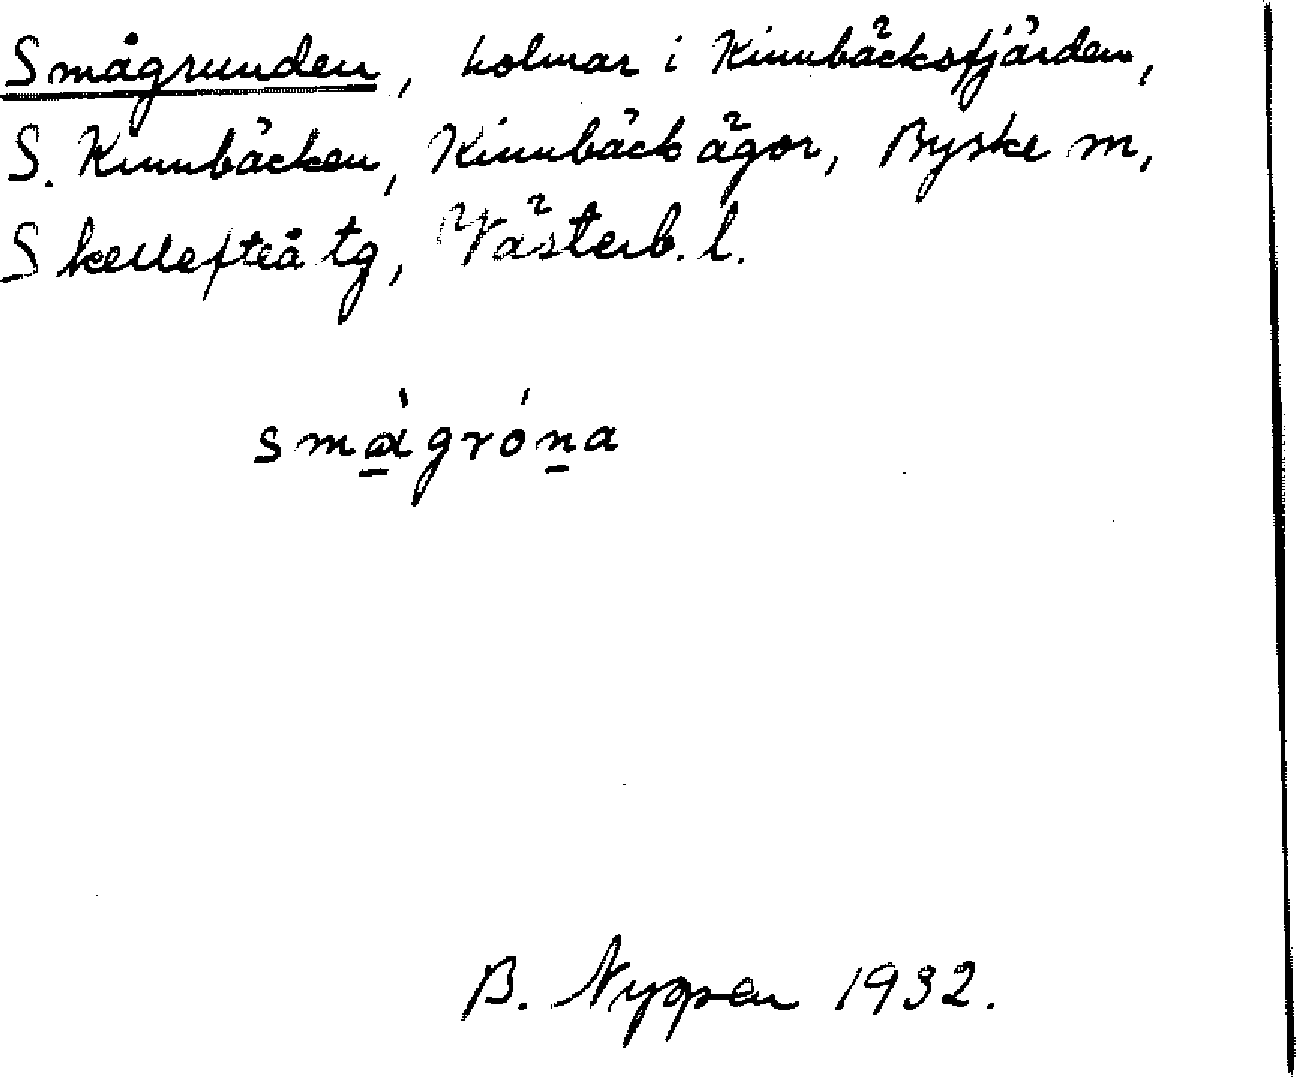 Smågrunden, holmar i Kinnbäcksfjärden,
S. Kinnbäcken, Kinnbäck ägor, Byske sn,
Skellefteå tg, Västerb. l.
smὰ̱gróṉa
B. Nyppen 1932.